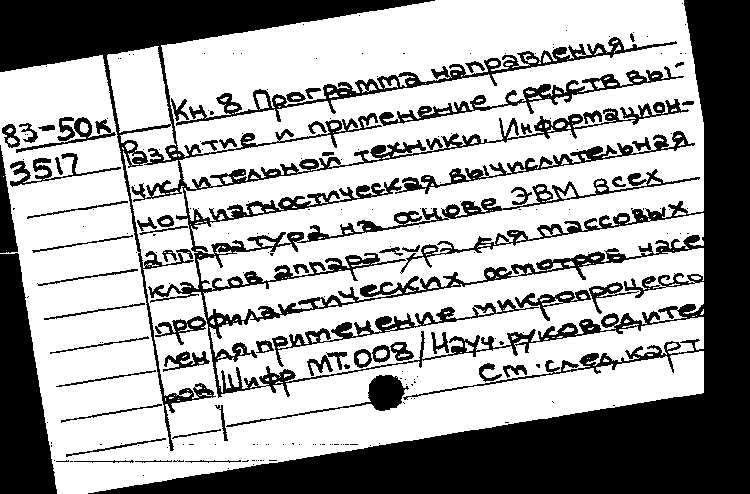 83-50к
3517
Кн. 8 Программа направления:
Развитие и применение средств вы-
числительной техники. Информацион-
но-диагностическая вычислительная
аппаратура на основе ЭВМ всех
классов, аппаратура для массовых
профилактических осмотров насе
ления, применение микропроцессо
ров/Шифр МТ.008/Науч.руководител
См.след.карт